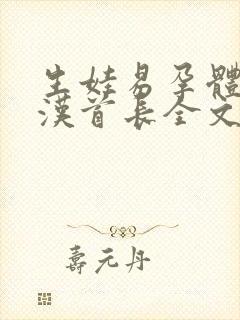 生娃易孕體
漢首長全文
壽元丹